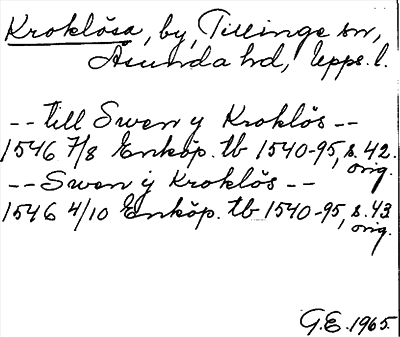 Kroklösa, by, Tillinge sn,
Åsunda hd, Upps. l.
-- till Swen y Kroklös --
1546 7/8 Enköp. tb 1540-95, s. 42.
orig.
-- Swen ÿ Kroklös --
1546 4/10 Enköp. tb 1540-95, s. 43
orig.
G.E. 1965.